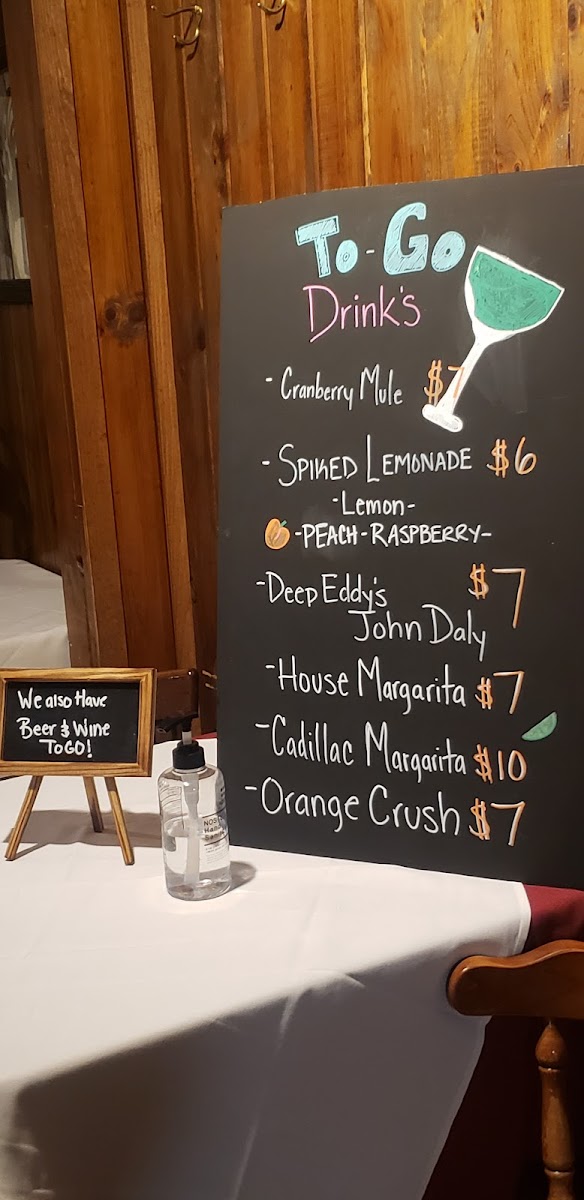 To-Go
Drink's
- Cranberry Mule $7
- SPIKED LEMONADE $6
-Lemon-
-PEACH-RASPBERRY-
-Deep Eddy's $7
John Daly
-House Margarita $7
-Cadillac Margarita $10
-Orange Crush $7
We also Have
Beer & Wine
TO GO!
Hand